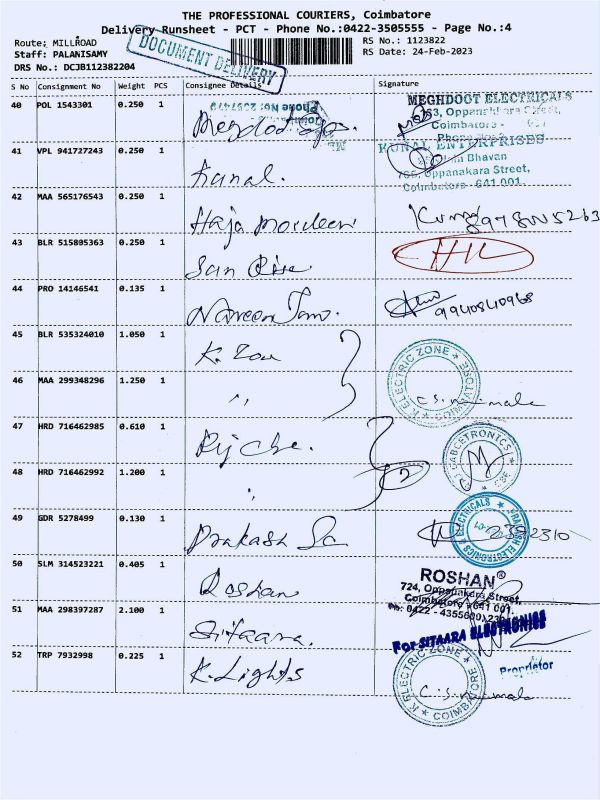 THE PROFESSIONAL COURIERS, Coimbatore
Delivery Runsheet - PCT - Phone No.:0422-3505555 - Page No.:4
Route: MILLROAD
RS No.: 1123822
Staff: PALANISAMY
RS Date: 24-Feb-2023
DRS No.: DCJB112382204
DOCUMENT DELIVERY
S No Consignment No Weight PCS Consignee Details Signature
40 POL 1543301 0.250 1
MEGHDOOT ELECTRICALS
Coimbatore -
41 VPL 941727243 0.250 1 Kunal.
KUNAL ENTERPRISES
Bhavan
Oppanakara Street,
Coimbatore - 641 001.
42 MAA 565176543 0.250 1 Haja
43 BLR 515805363 0.250 1 Sun Rise
44 PRO 14146541 0.135 1 Naveen
9940840968
45 BLR 535324010 1.050 1 K. Zon
K ELECTRIC ZONE COIMBATORE
46 MAA 299348296 1.250 1 "
C.S. nirmala
47 HRD 716462985 0.610 1
CABCETRONICS
48 HRD 716462992 1.200 1 "
2
49 GDR 5278499 0.130 1 Prakash
PRAKASH ELECTRONICS ELECTRICALS
2392310
50 SLM 314523221 0.405 1 Roshan
ROSHAN®
724, Oppanakara Street,
Coimbatore - 641 001.
Ph: 0422 - 4355600,
51 MAA 298397287 2.100 1 Sitaara.
For SITAARA ELECTRONICS
Proprietor
52 TRP 7932998 0.225 1 K. Lights
K ELECTRIC ZONE COIMBATORE
C.S. nirmala